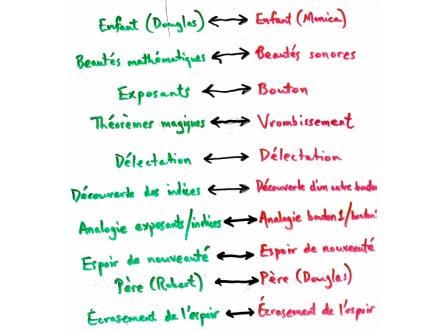 Enfant (Douglas) ↔ Enfant (Monica)
Beautés mathématiques ↔ Beautés sonores
Exposants ↔ Bouton
Théorèmes magiques ↔ Vrombissement
Délectation ↔ Délectation
Découverte des indices ↔ Découverte d'un autre bouton
Analogie exposants/indices ↔ Analogie bouton1/bouton
Espoir de nouveauté ↔ Espoir de nouveauté
Père (Robert) ↔ Père (Douglas)
Écrasement de l'espoir ↔ Écrasement de l'espoir